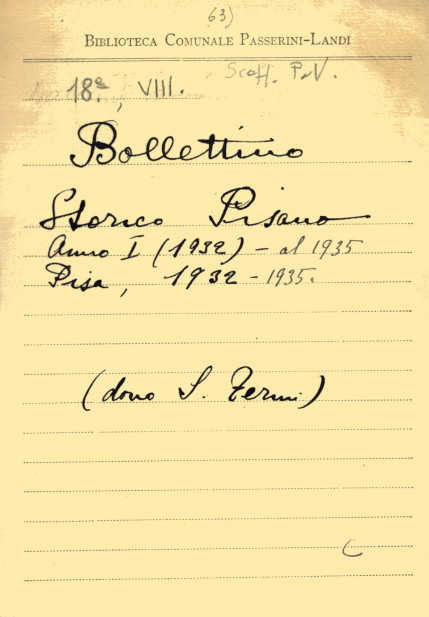 63)
BIBLIOTECA COMUNALE PASSERINI-LANDI
Scaff. P.V.
18ª, VIII.
Bollettino
Storico Pisano
Anno I (1932) - al 1935
Pisa, 1932 - 1935.
(dono S. Fermi)
C